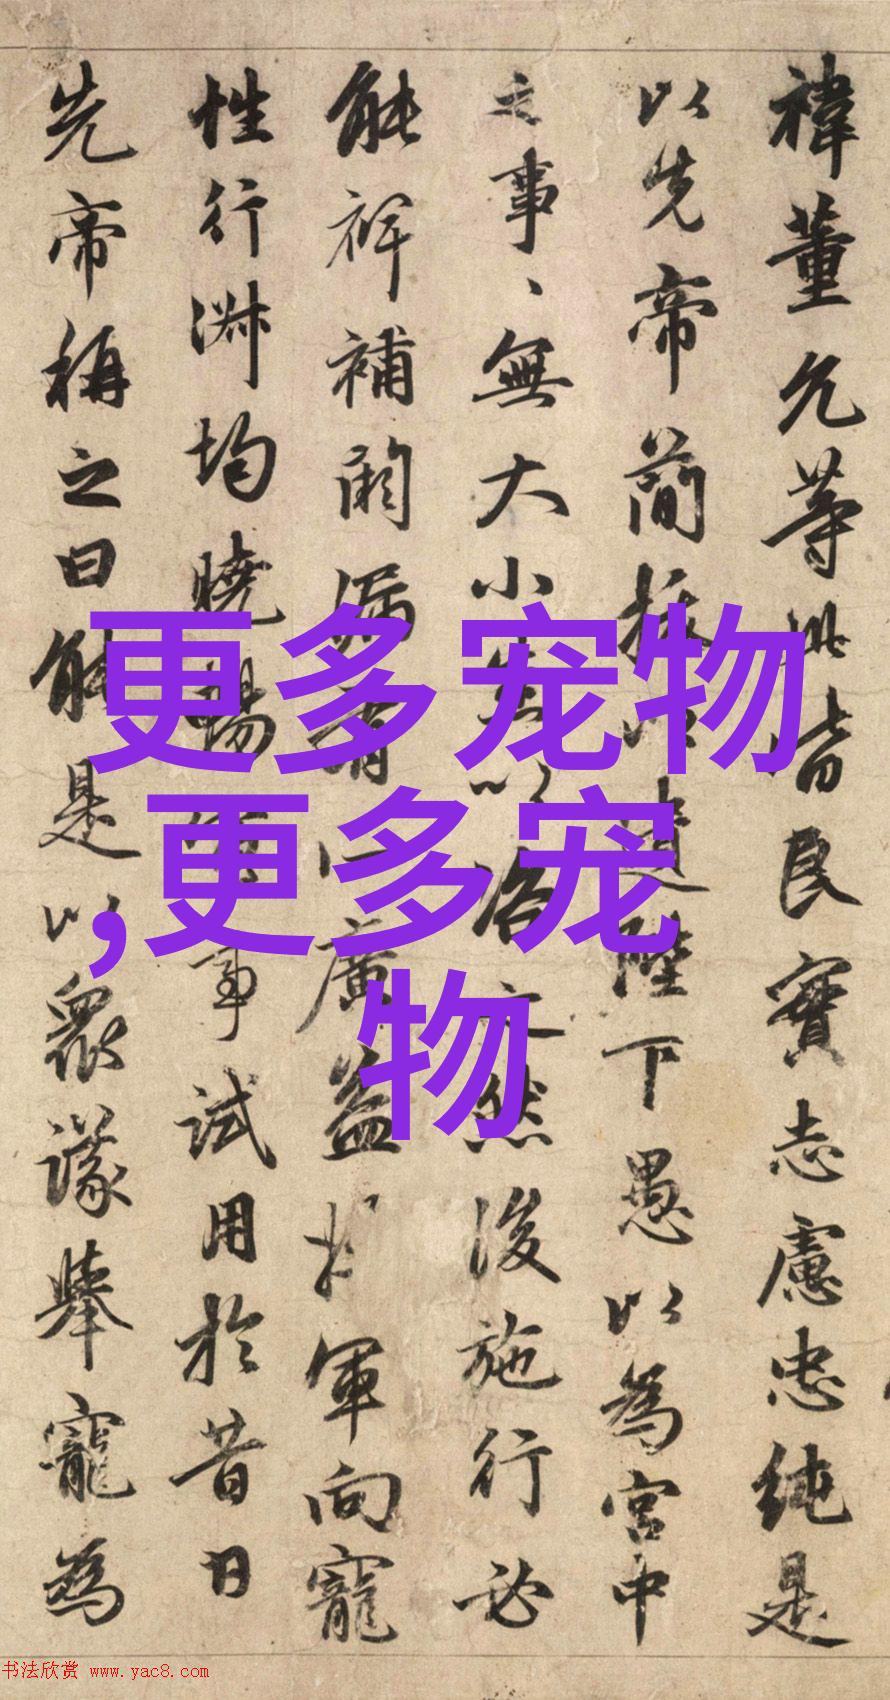 禕董允等此皆良實志慮忠純是
以先帝簡拔以遺陛下愚以為宮中
之事、無大小悉以咨之然後施行必
能裨補闕漏有廣益軍向寵
性行淑均曉暢軍事試用於昔日
先帝稱之曰能是以衆議舉寵為
更多宠物
,更多宠
物
书法欣赏 www.yac8.com